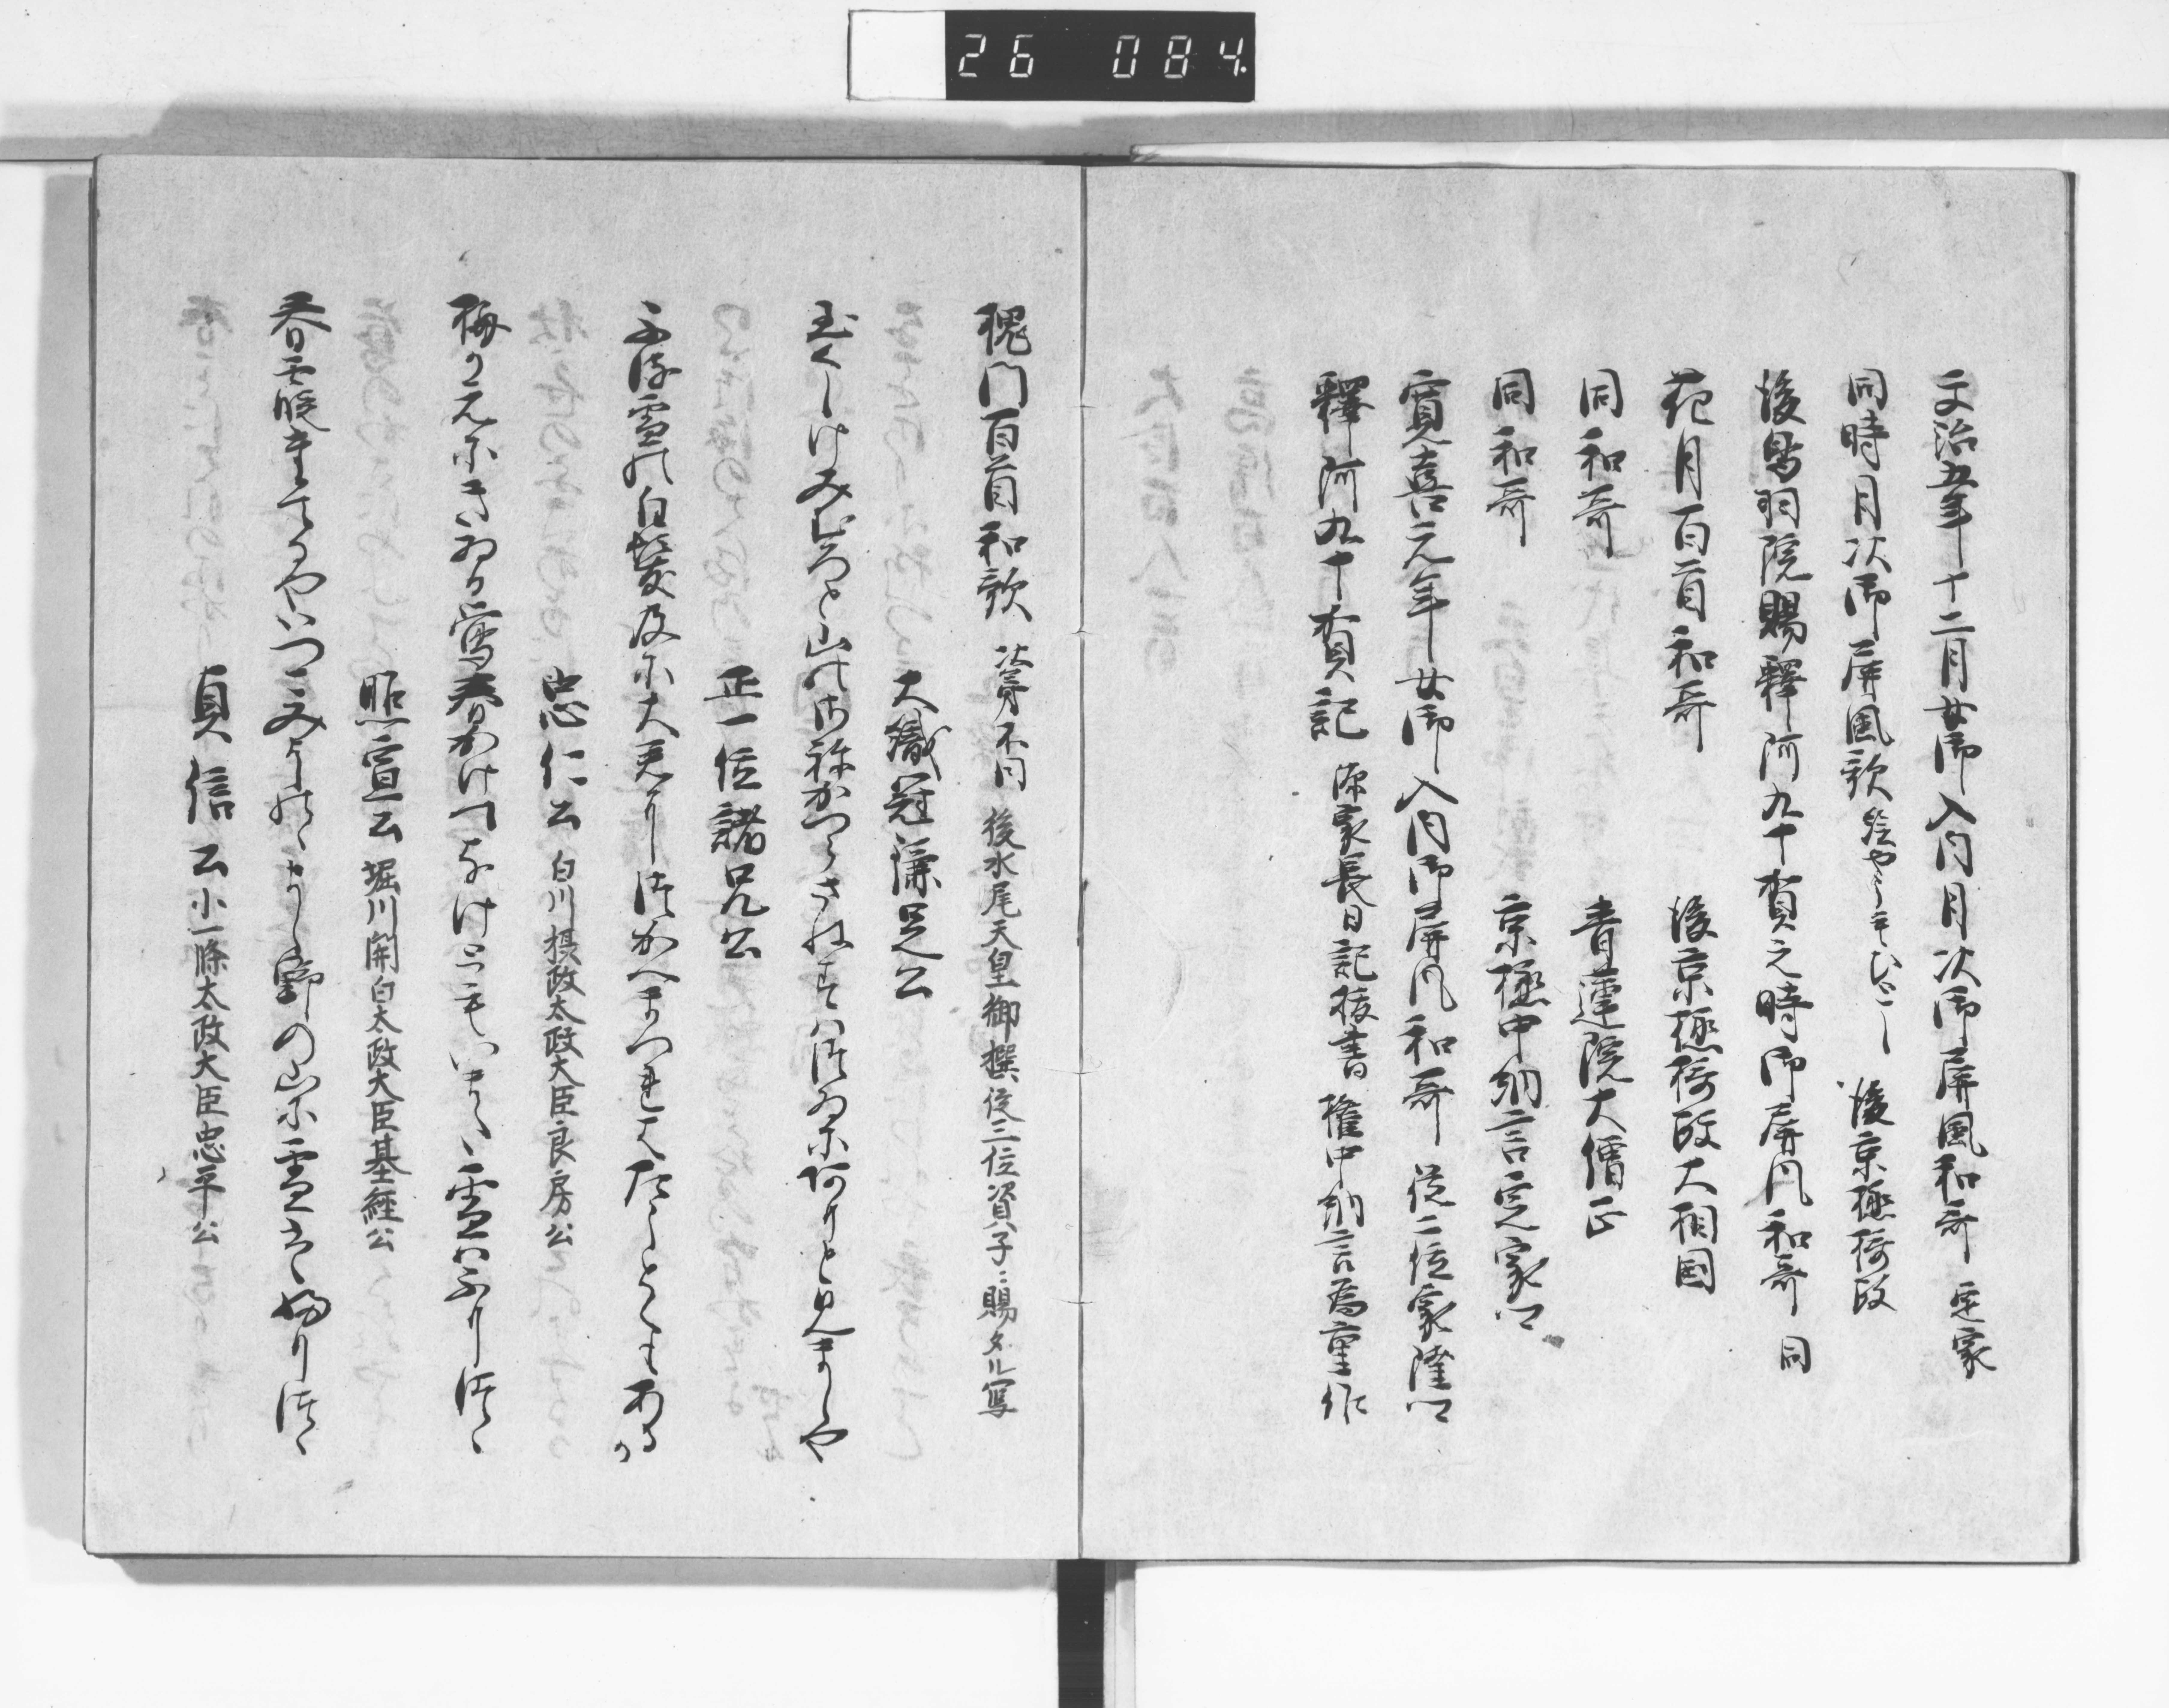 26 084
文治五年十二月女御入内月次御屏風和哥 定家
同時月次御屏風歌 後京極摂政
後鳥羽院賜釋阿九十賀之時御屏風和哥 同
花月百首和哥 後京極摂政大相国
同和哥 青蓮院大僧正
同和哥 京極中納言定家卿
寛喜元年女御入内御屏風和哥 従二位家隆卿
釋阿九十賀記 源家長日記抜書 権中納言為重作
槐門百首和歌 後水尾天皇御撰従三位資子ニ賜タル写
大織冠鎌足公
玉くしけみむろと山のさねかつらさねすはつゐに有と見ましや
正一位諸兄公
ふる雪の白髪及に大君につかへまつれはたふとくもあるか
忠仁公 白川摂政太政大臣良房公
梅か えにきゐる鶯春かけてなけともいまた雪はふりつゝ
昭宣公 堀川関白太政大臣基経公
春霞たてるやいつこみよしのゝよし野の山に雪はふりつゝ
貞信公 小一條太政大臣忠平公